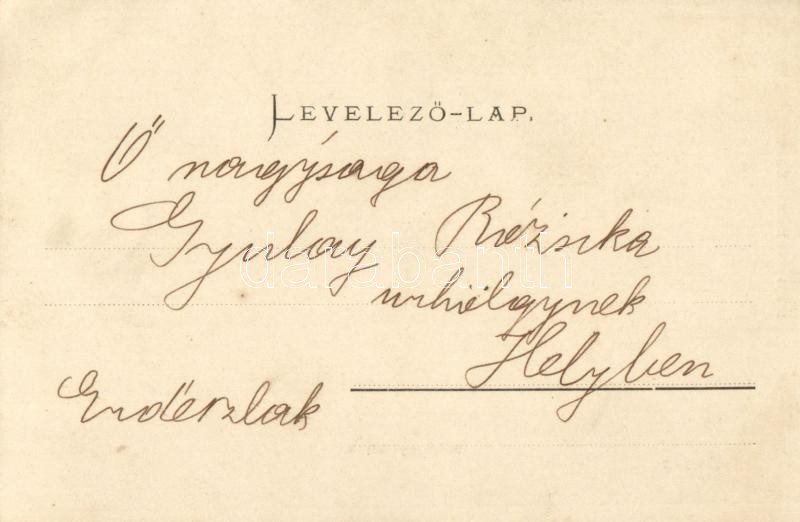 LEVELEZŐ-LAP.
Ő nagysága
Gyulay Rózsika
urhölgynek
Helyben
darabanth